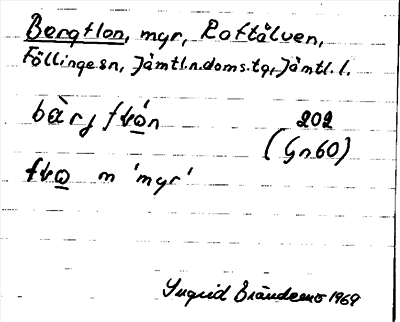 Bergflon, myr, Raftälven,
Föllinge sn, Jämtl.n.doms.tg, Jämtl. l.
bàrj flo̱n 202
(Gn60)
flo̱ m 'myr'
Ingrid Brändemo 1969